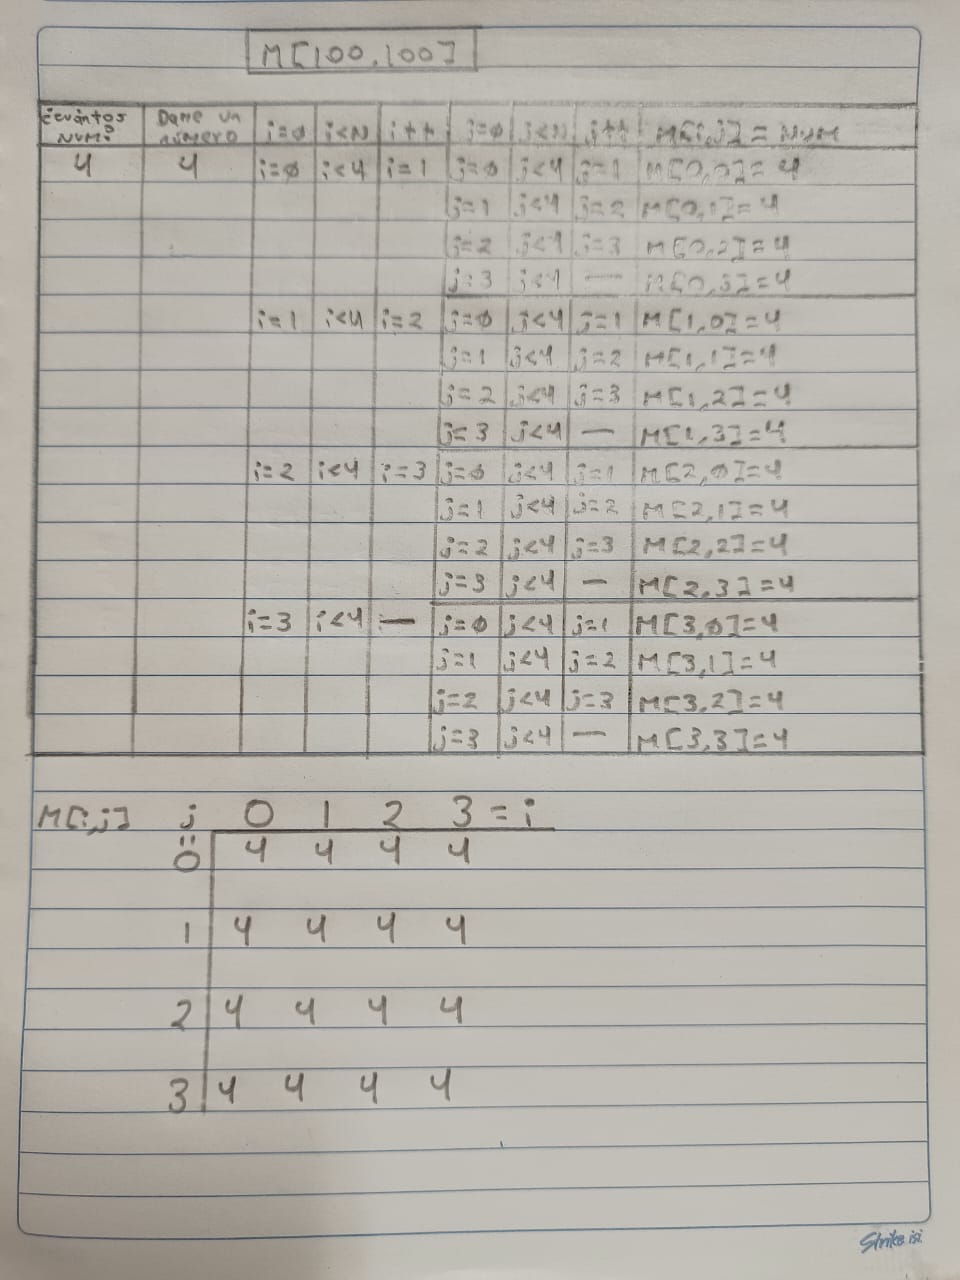 M[100,100]
¿cuántos Dame un
NUM? número i=0 i<N i++ j=0 j<N j++ M[i,j] = NUM
4 4 i=0 i<4 i=1 j=0 j<4 j=1 M[0,0]=4
j=1 j<4 j=2 M[0,1]=4
j=2 j<4 j=3 M[0,2]=4
j=3 j<4 — M[0,3]=4
i=1 i<4 i=2 j=0 j<4 j=1 M[1,0]=4
j=1 j<4 j=2 M[1,1]=4
j=2 j<4 j=3 M[1,2]=4
j=3 j<4 — M[1,3]=4
i=2 i<4 i=3 j=0 j<4 j=1 M[2,0]=4
j=1 j<4 j=2 M[2,1]=4
j=2 j<4 j=3 M[2,2]=4
j=3 j<4 — M[2,3]=4
i=3 i<4 — j=0 j<4 j=1 M[3,0]=4
j=1 j<4 j=2 M[3,1]=4
j=2 j<4 j=3 M[3,2]=4
j=3 j<4 — M[3,3]=4
M[i,j] j 0 1 2 3 = i
0 4 4 4 4
1 4 4 4 4
2 4 4 4 4
3 4 4 4 4
Strike